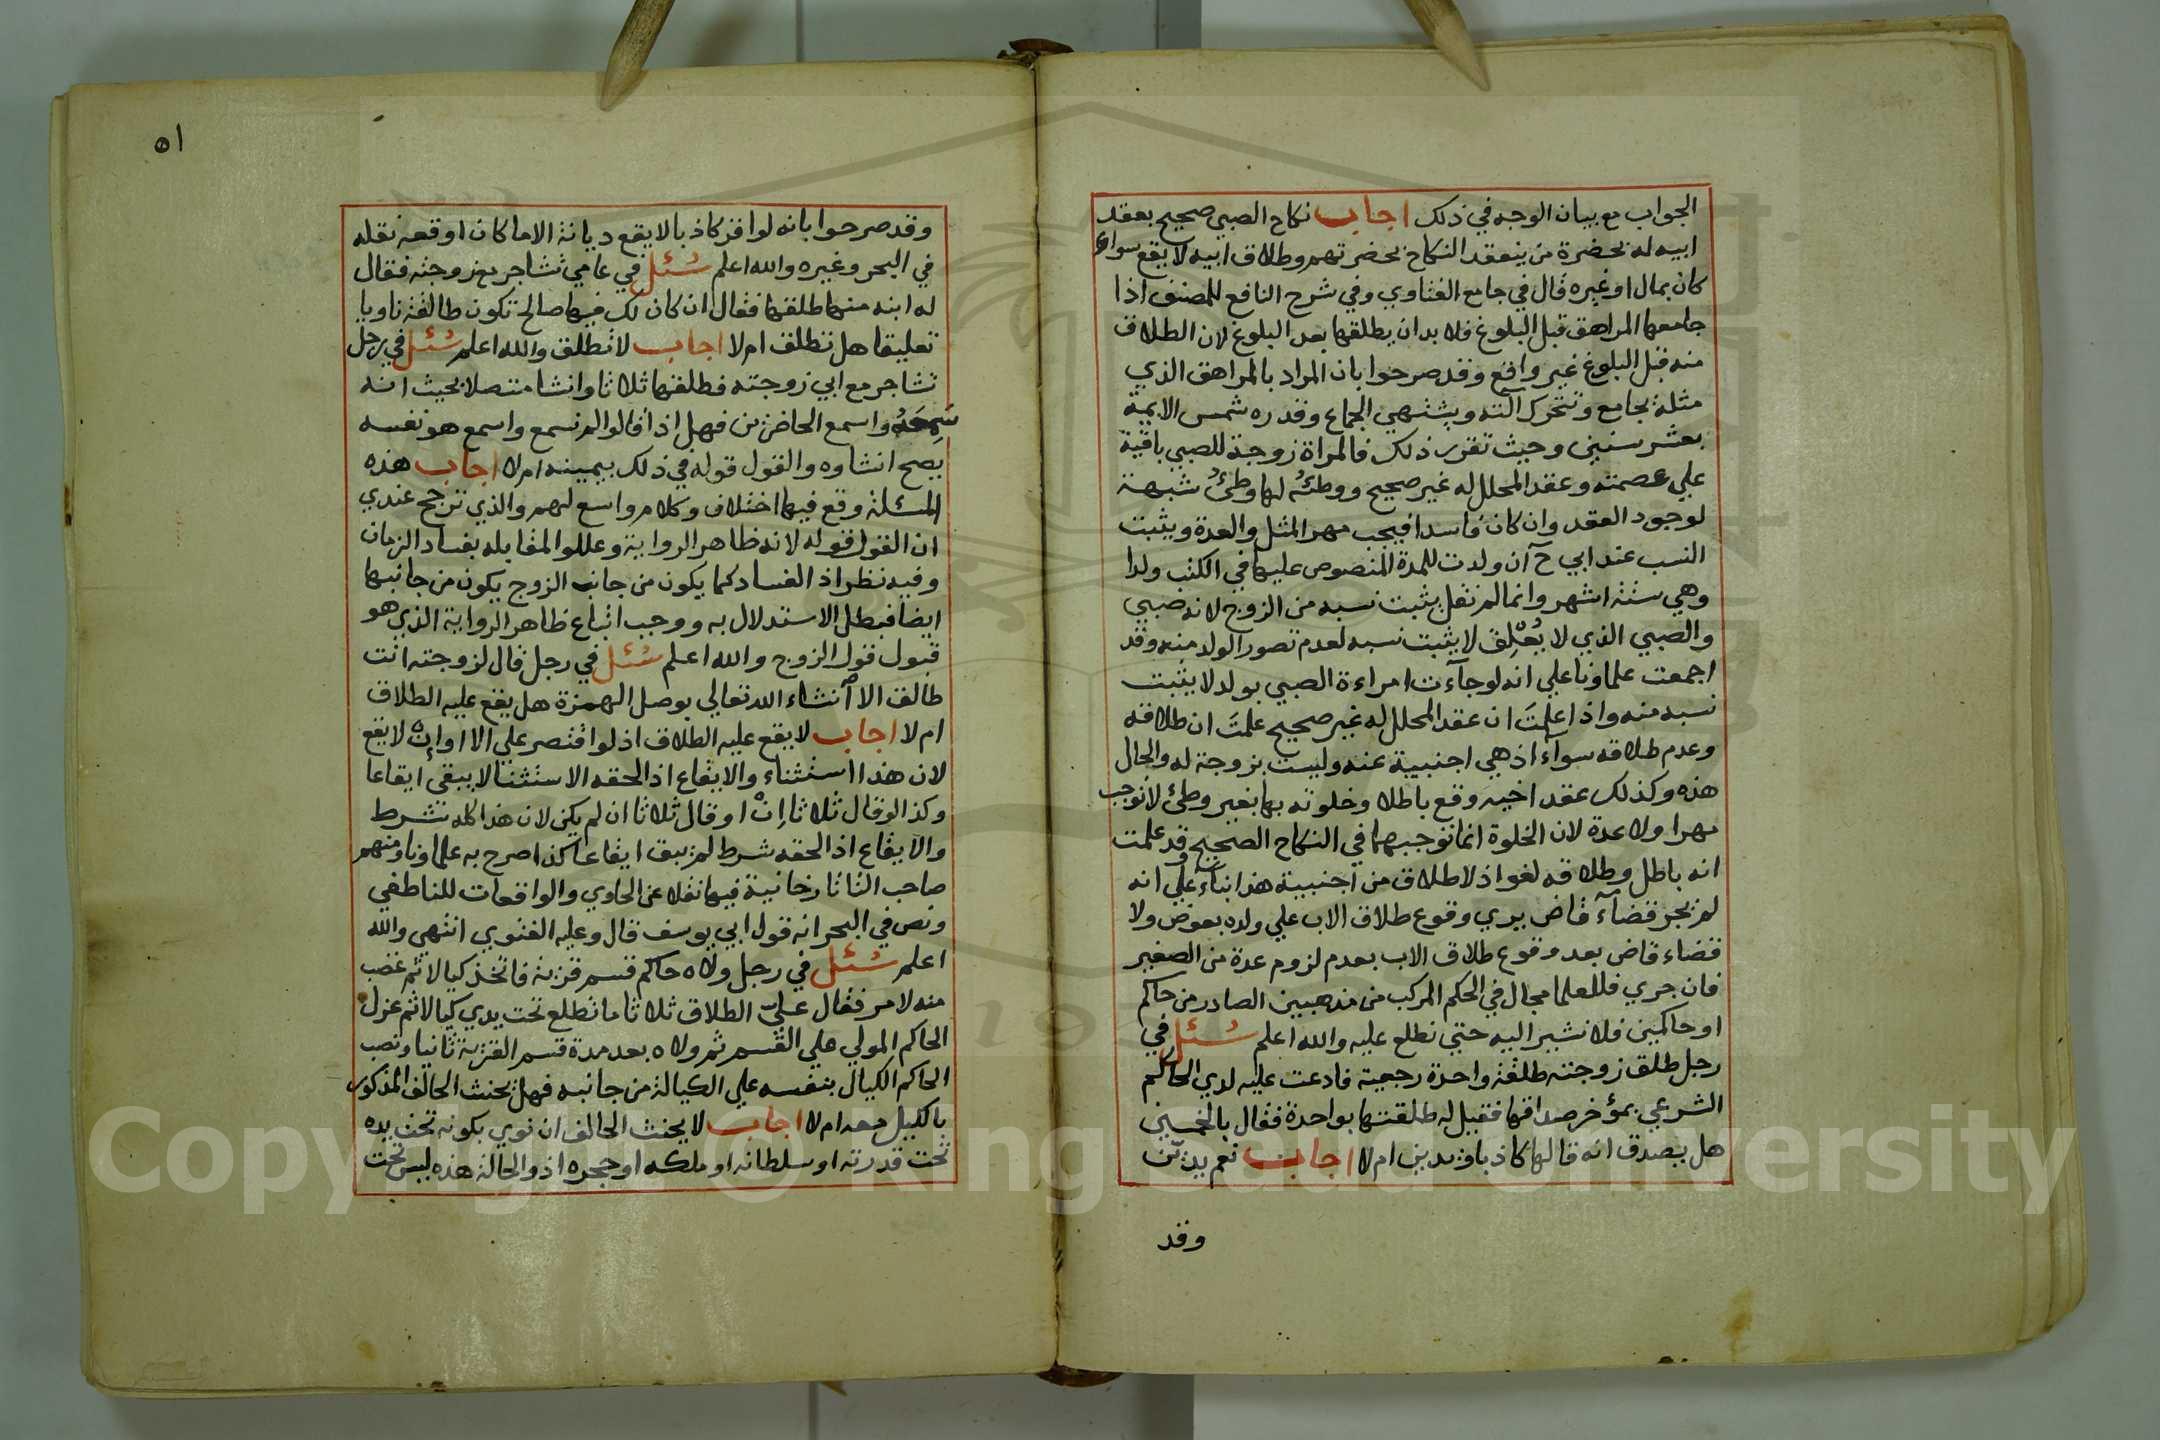 الجواب مع بيان الوجه في ذلك اجاب نكاح الصبي صحيح بعقد
ابيه له بحضرة من ينعقد النكاح بحضرتهم وطلاق ابيه لا يقع سواء
كان بمال او غيره قال في جامع الفتاوي وفي شرح النافع للمصنف اذا
جامعها المراهق قبل البلوغ فلا بد ان يطلقها بعد البلوغ لان الطلاق
منه قبل البلوغ غير واقع وقد صرحوا بان المراد بالمراهق الذي
مثله يجامع وتتحرك آلته ويشتهي الجماع وقدره شمس الايمة
بعشر سنين وحيث تقرر ذلك فالمراة زوجة للصبي باقية
علي عصمته وعقد المحلل له غير صحيح ووطئه لها وطئ شبهة
لوجود العقد وان كان فاسدا فيجب مهر المثل والعدة ويثبت
النسب عند ابي ح آن ولدت للمدة المنصوص عليها في الكتب ولدا
وهي ستة اشهر وانما لم نقل يثبت نسبه من الزوج لانه صبي
والصبي الذي لا يُعْلِق لا يثبت نسبه لعدم تصور الولد منه وقد
اجمعت علماونا علي انه لو جآءت امراءة الصبي بولد لا يثبت
نسبه منه واذا علمتَ ان عقد المحلل له غير صحيح علمتَ ان طلاقه
وعدم طلاقه سوآء اذ هي اجنبية عنه وليست بزوجة له والحال
هذه وكذلك عقد اخيه وقع باطلا وخلوته بها بغير وطئ لا توجب
مهرا ولا عدة لان الخلوة انما توجبهما في النكاح الصحيح وقد علمت
انه باطل وطلاقه لغو اذ لا طلاق من اجنبية هذا بنآء علي انه
لم يجر قضآء قاض يري وقوع طلاق الاب علي ولده بعوض ولا
قضاء قاض بعد وقوع طلاق الاب بعدم لزوم عدة من الصغير
فان جري فللعلما مجال في الحكم المركب من مذهبين الصادر من حاكم
او حاكمين فلا نشير اليه حتي نطلع عليه والله اعلم سُئل في
رجل طلق زوجته طلقة واحدة رجعية فادعت عليه لدي الحاكم
الشرعي بمؤخر صداقها فقيل له طلقتها بواحدة فقال بالخمسين
هل يصدق انه قالها كاذبا ويدين ام لا اجاب نعم يديّن
وقد
٥١
وقد صرحوا بانه لو اقر كاذبا لا يقع ديانة الا ما كان اوقعه نقله
في البحر وغيره والله اعلم سُئل في عامي تشاجر مع زوجته فقال
له ابنه منها طلقها فقال ان كان لك فيها صالح تكون طالقة ناويا
تعليقا هل تطلق ام لا اجاب لا تطلق والله اعلم سُئل في رجل
تشاجر مع ابي زوجته فطلقها ثلاثا وانشا متصلا بحيث انه
سَمِعَهُ واسمع الحاضرين فهل اذا قالوا لم نسمع واسمع هو نفسه
يصح انشاوه والقول قوله في ذلك بيمينه ام لا اجاب هذه
المسئلة وقع فيها اختلاف وكلام واسع لهم والذي ترجح عندي
ان القول قوله لانه ظاهر الرواية وعللوا المقابله بفساد الزمان
وفيه نظر اذ الفساد كما يكون من جانب الزوج يكون من جانبها
ايضا فبطل الاستدلال به ووجب اتباع ظاهر الرواية الذي هو
قبول قول الزوج والله اعلم سُئل في رجل قال لزوجته انت
طالق الا آنشاء الله تعالي بوصل الهمزة هل يقع عليه الطلاق
ام لا اجاب لا يقع عليه الطلاق اذ لو اقتصر علي الا او اِنْ لا يقع
لان هذا استثناء والايقاع اذا لحقه الاستثنا لا يبقي ايقاعا
وكذا لو قال ثلاثا اِنْ او قال ثلاثا ان لم يكن لان هذا كله شرط
والايقاع اذا لحقه شرط لم يبق ايقاعا كذا صرح به علماونا ومنهم
صاحب التاتارخانية فيها نقلا عن الحاوي والواقعات للناطفي
ونص في البحر انه قول ابي يوسف قال وعليه الفتوي انتهي والله
اعلم سُئل في رجل ولاه حاكم قسم قرية فاتخذ كيالا ثم غضب
منه لامر فقال عليّ الطلاق ثلاثا ما تطلع تحت يدي كيالا ثم عزل
الحاكم المولي علي القسم ثم ولاه بعد مدة قسم القرية ثانيا ونصب
الحاكم الكيال بنفسه علي الكيالة من جانبه فهل يحنث الحالف المذكور
بالكيل معه ام لا اجاب لا يحنث الحالف ان نوي بكونه تحت يده
تحت قدرته او سلطانه او ملكه او حجره اذ والحالة هذه ليس تحت
Copyright © King Saud University